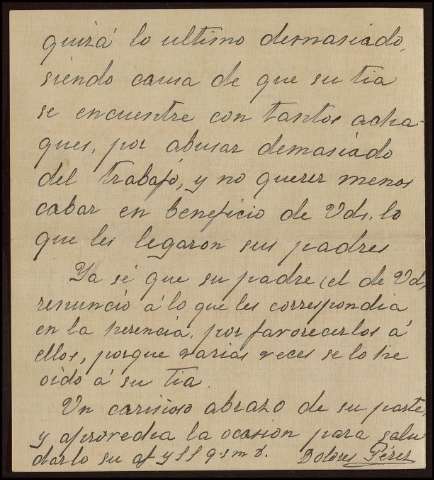 quizá lo ultimo demasiado,
siendo causa de que su tia
se encuentre con tantos acha-
ques, por abusar demasiado
del trabajo, y no querer menos
cabar en beneficio de Vds. lo
que les legaron sus padres
Ya sé que su padre (el de Vds)
renunció á lo que les correspondia
en la herencia, por favorecerlos á
ellos, porque varias veces se lo he
oido á su tia.
Un cariñoso abrazo de su parte,
y aprovecha la ocasion para salu
darlo su af y SS q.s.m.b. Dolores Pérez